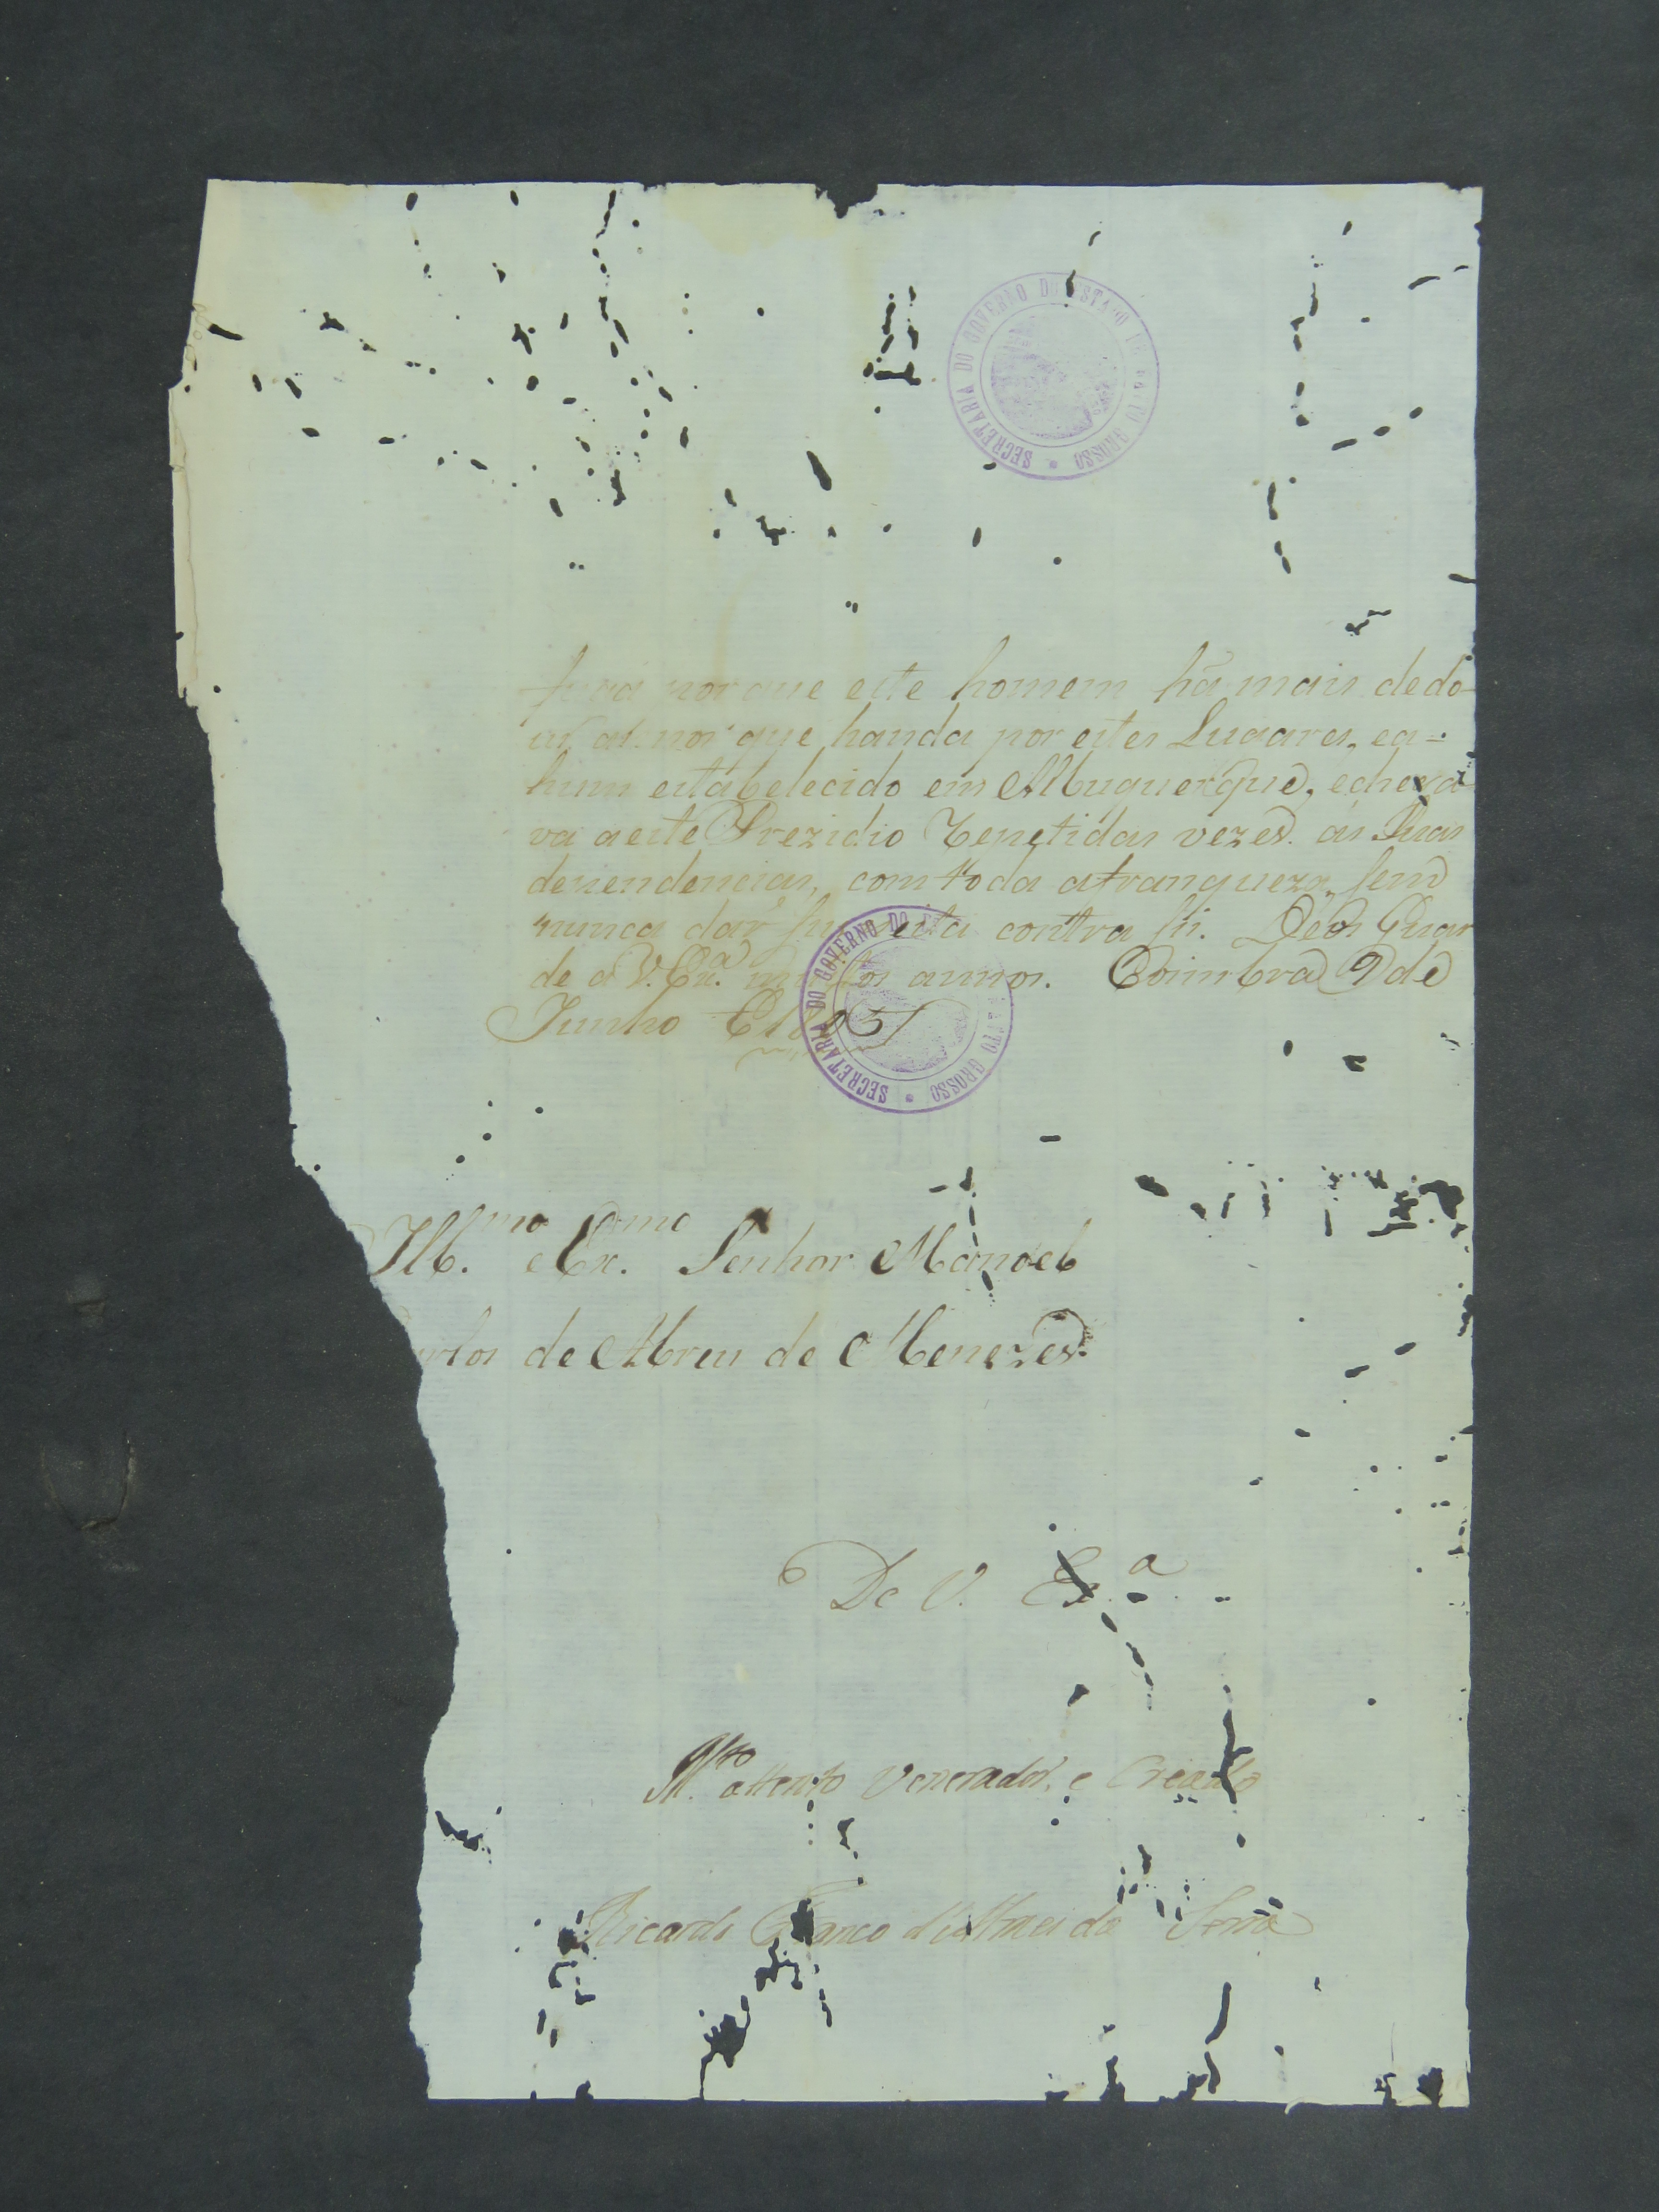 SECRETARIA DO GOVERNO DO ESTADO DE MATTO GROSSO
porque este homem hâ mais dedo-
us annos que handa por estes Lugares, ea-
hum estabelecido em Albuquerque, echega
va aeste Prezidio repetidas vezes. as suas
dependencias, comtoda afranqueza, sem
nunca dar contra si. Deos Guar
de a V. Ex.ª muitos annos. Coimbra 9 de
Junho
SECRETARIA DO GOVERNO DO ESTADO DE MATTO GROSSO
Ill.mo e Ex.mo Senhor Manoel
rlos de Abreu de Menezes.
De V. Ex.ª
M.to attento Venerador, e Creado
Ricardo Franco d'Almeida Serra